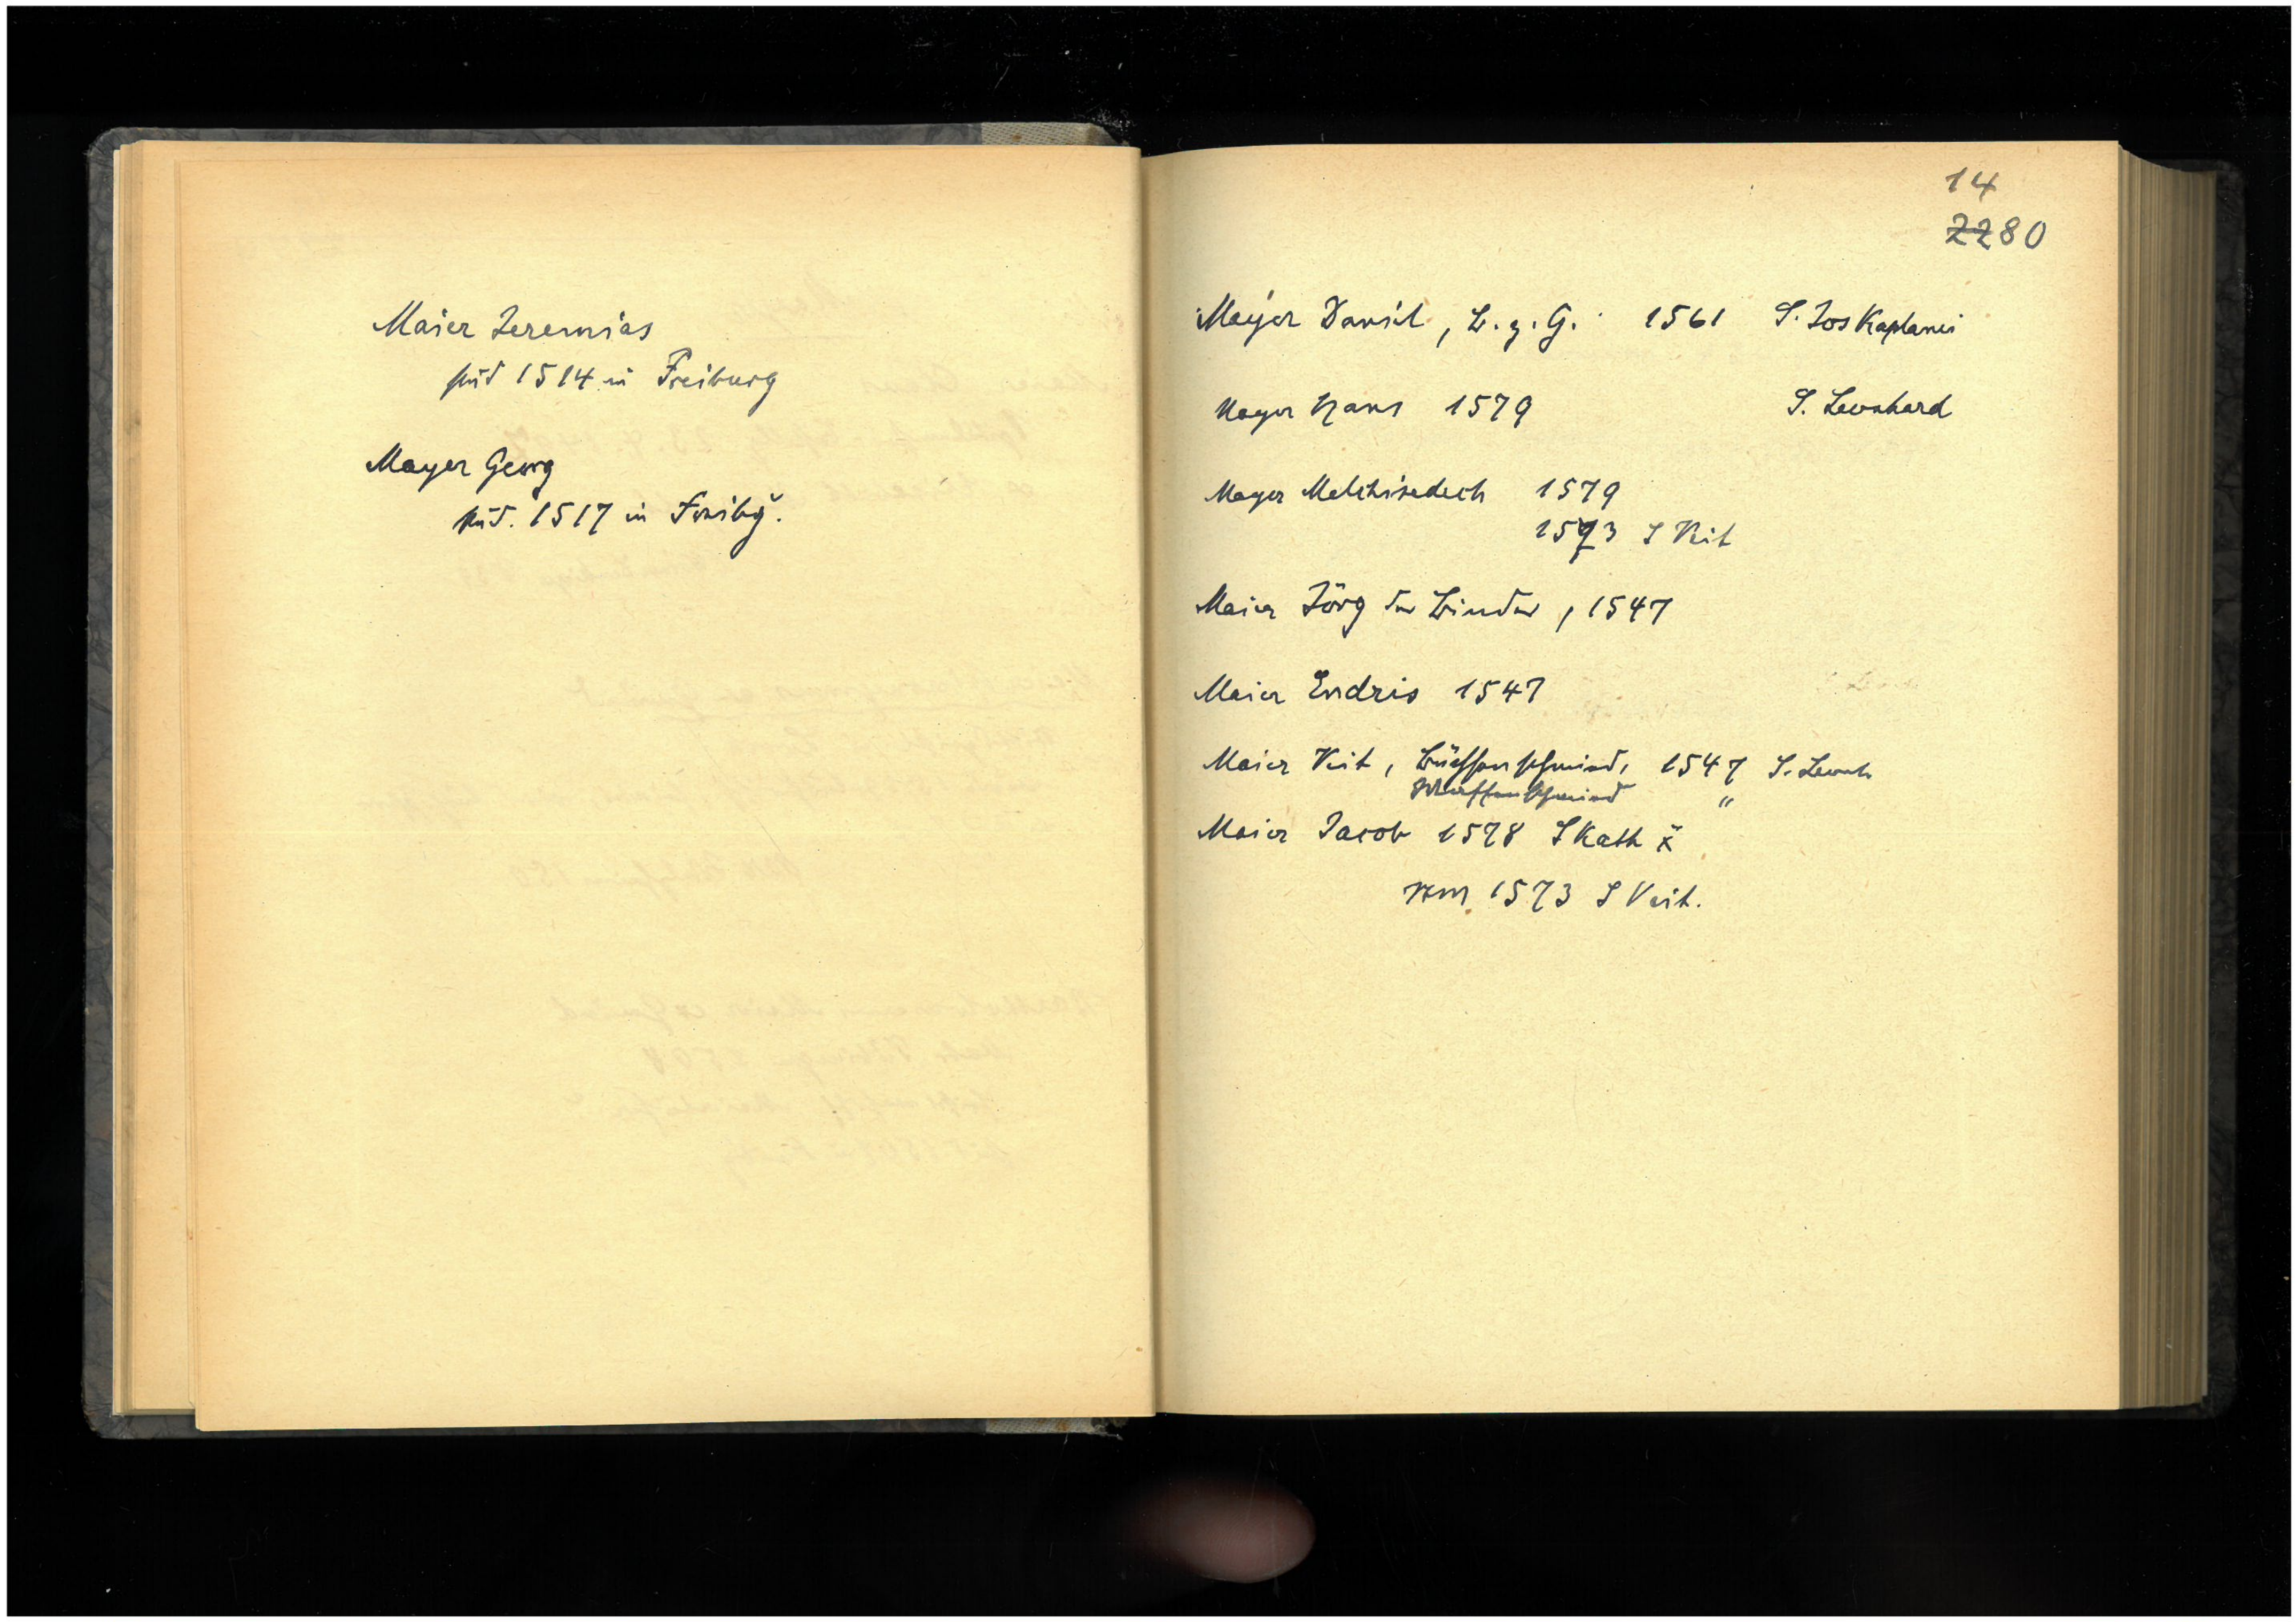 Maier Jeremias
stud 1514 in Freiburg
Mayer Georg
stud. 1517 in Freibg.
14
2280
Mayer Daniel, B. z. G. 1561 S. Jos Kaplanei
Mayer Hans 1579 S. Leonhard
Mayer Melchisedech 1579
1573 S Veit
Maier Jörg der Binder, 1547
Maier Endris 1547
Maier Veit, Büchsenschmied, 1547 S. Leonh
Waffenschmied "
Maier Jacob 1578 S Kath
1573 S Veit.